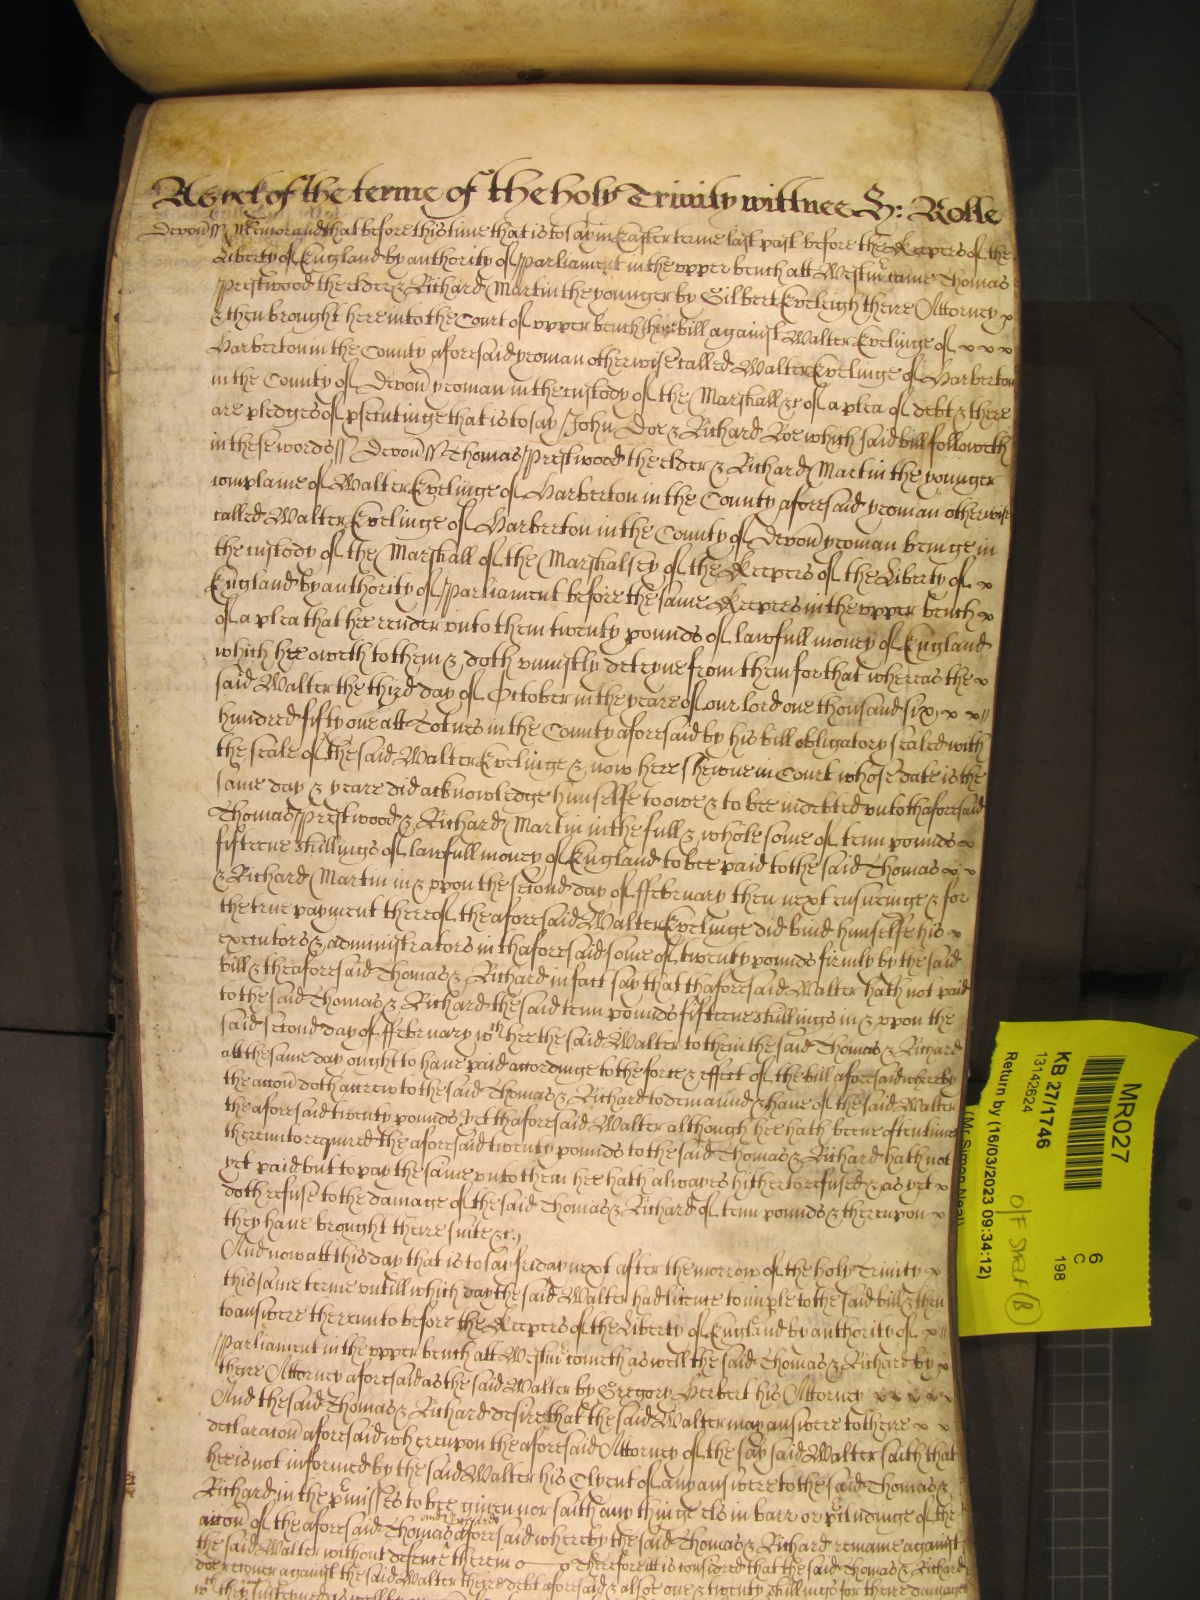 As yet of the terme of the holy Trinity wittnes H: Rolle
Devon ss Memorand that before this time that is to say in Easter terme last past before the Keepers of the
Liberty of England by authority of Parliament in the upper bench att Westmr came Thomas
Prestwood the elder & Richard Martin the younger by Gilbert Eveleigh there Attorney x
& then brought here into the Court of upper bench there bill against Walter Evelinge of x x x
Harberton in the County aforesaid yeoman otherwise called Walter Evelinge of Harberton
in the County of Devon yeoman in the custody of the Marshall &c of a plea of debt & there
are pledges of psecutinge that is to say John Doe & Richard Roe which said bill followeth
in these words ss Devon ss Thomas Prestwood the elder & Richard Martin the younger
complaine of Walter Evelinge of Harberton in the County aforesaid yeoman otherwise
called Walter Evelinge of Harberton in the County of Devon yeoman beinge in
the custody of the Marshall of the Marshalsey of the Keepers of the Liberty of x
England by authority of Parliament before the same Keepers in the upper bench x
of a plea that hee render unto them twenty pounds of lawfull money of England
which hee oweth to them & doth uniustly deteyne from them for that whereas the x
said Walter the third day of October in the yeare of our lord one thousand six x x
hundred fifty one att Totnes in the County aforesaid by his bill obligatory sealed with
the seale of the said Walter Evelinge & now here shewne in Court whose date is the
same day & yeare did acknowledge himselfe to owe & to bee indebted unto thaforesaid
Thomas Prestwood & Richard Martin in the full & whole some of tenn pounds x
fifteene shillings of lawfull money of England to bee paid to the said Thomas x x
& Richard Martin in & upon the second day of ffebruary then next ensueinge & for
the true payment thereof the aforesaid Walter Evelinge did bind himselfe his x
executors & administrators in thaforesaid some of twenty pounds firmly by the said
bill & theaforesaid Thomas & Richard in fact say that thaforesaid Walter hath not paid
to the said Thomas & Richard the said tenn pounds fifteene shillings in & upon the
said second day of ffebruary wch hee the said Walter to them the said Thomas & Richard
att the same day ought to have paid accordinge to the force & effect of the bill aforesaid whereby
the accon doth accrew to the said Thomas & Richard to demaund & have of the said Walter
the aforesaid twenty pounds yet thaforesaid Walter although hee hath beene oftentimes
thereunto required the aforesaid twenty pounds to the said Thomas & Richard hath not
yet paid but to pay the same unto them hee hath alwaies hitherto refused & as yet x
doth refuse to the damage of the said Thomas & Richard of tenn pounds & thereupon x
they have brought there suite &c.
And now att this day that is to say friday next after the morrow of the holy Trinity x
this same terme untill which day the said Walter had licence to imple to the said bill & then
to answere thereunto before the Keepers of the Liberty of England by authority of x
Parliament in the upper bench att Westmr cometh aswell the said Thomas & Richard by x
there Attorney aforesaid as the said Walter by Gregory Herbert his Attorney x x x x
And the said Thomas & Richard desire that the said Walter may answere to there x x
declaracon aforesaid whereupon the aforesaid Attorney of the say said Walter saith that
hee is not informed by the said Walter his Clyent of any answere to the said Thomas &
Richard in the pmisses to bee given nor saith any thinge els in barr or pcludinge of the
accon of the aforesaid Thomas and Richard aforesaid whereby the said Thomas & Richard remaine against
the said Walter without defence therein Therefore itt is considered that the said Thomas & Richard
doe recover against the said Walter there debt aforesaid & alsoe one & twenty shillings for there damages
wch they susteyned
MR027
KB 27/1746
13142624
Return by (16/03/2023 09:34:12)
6
C
198